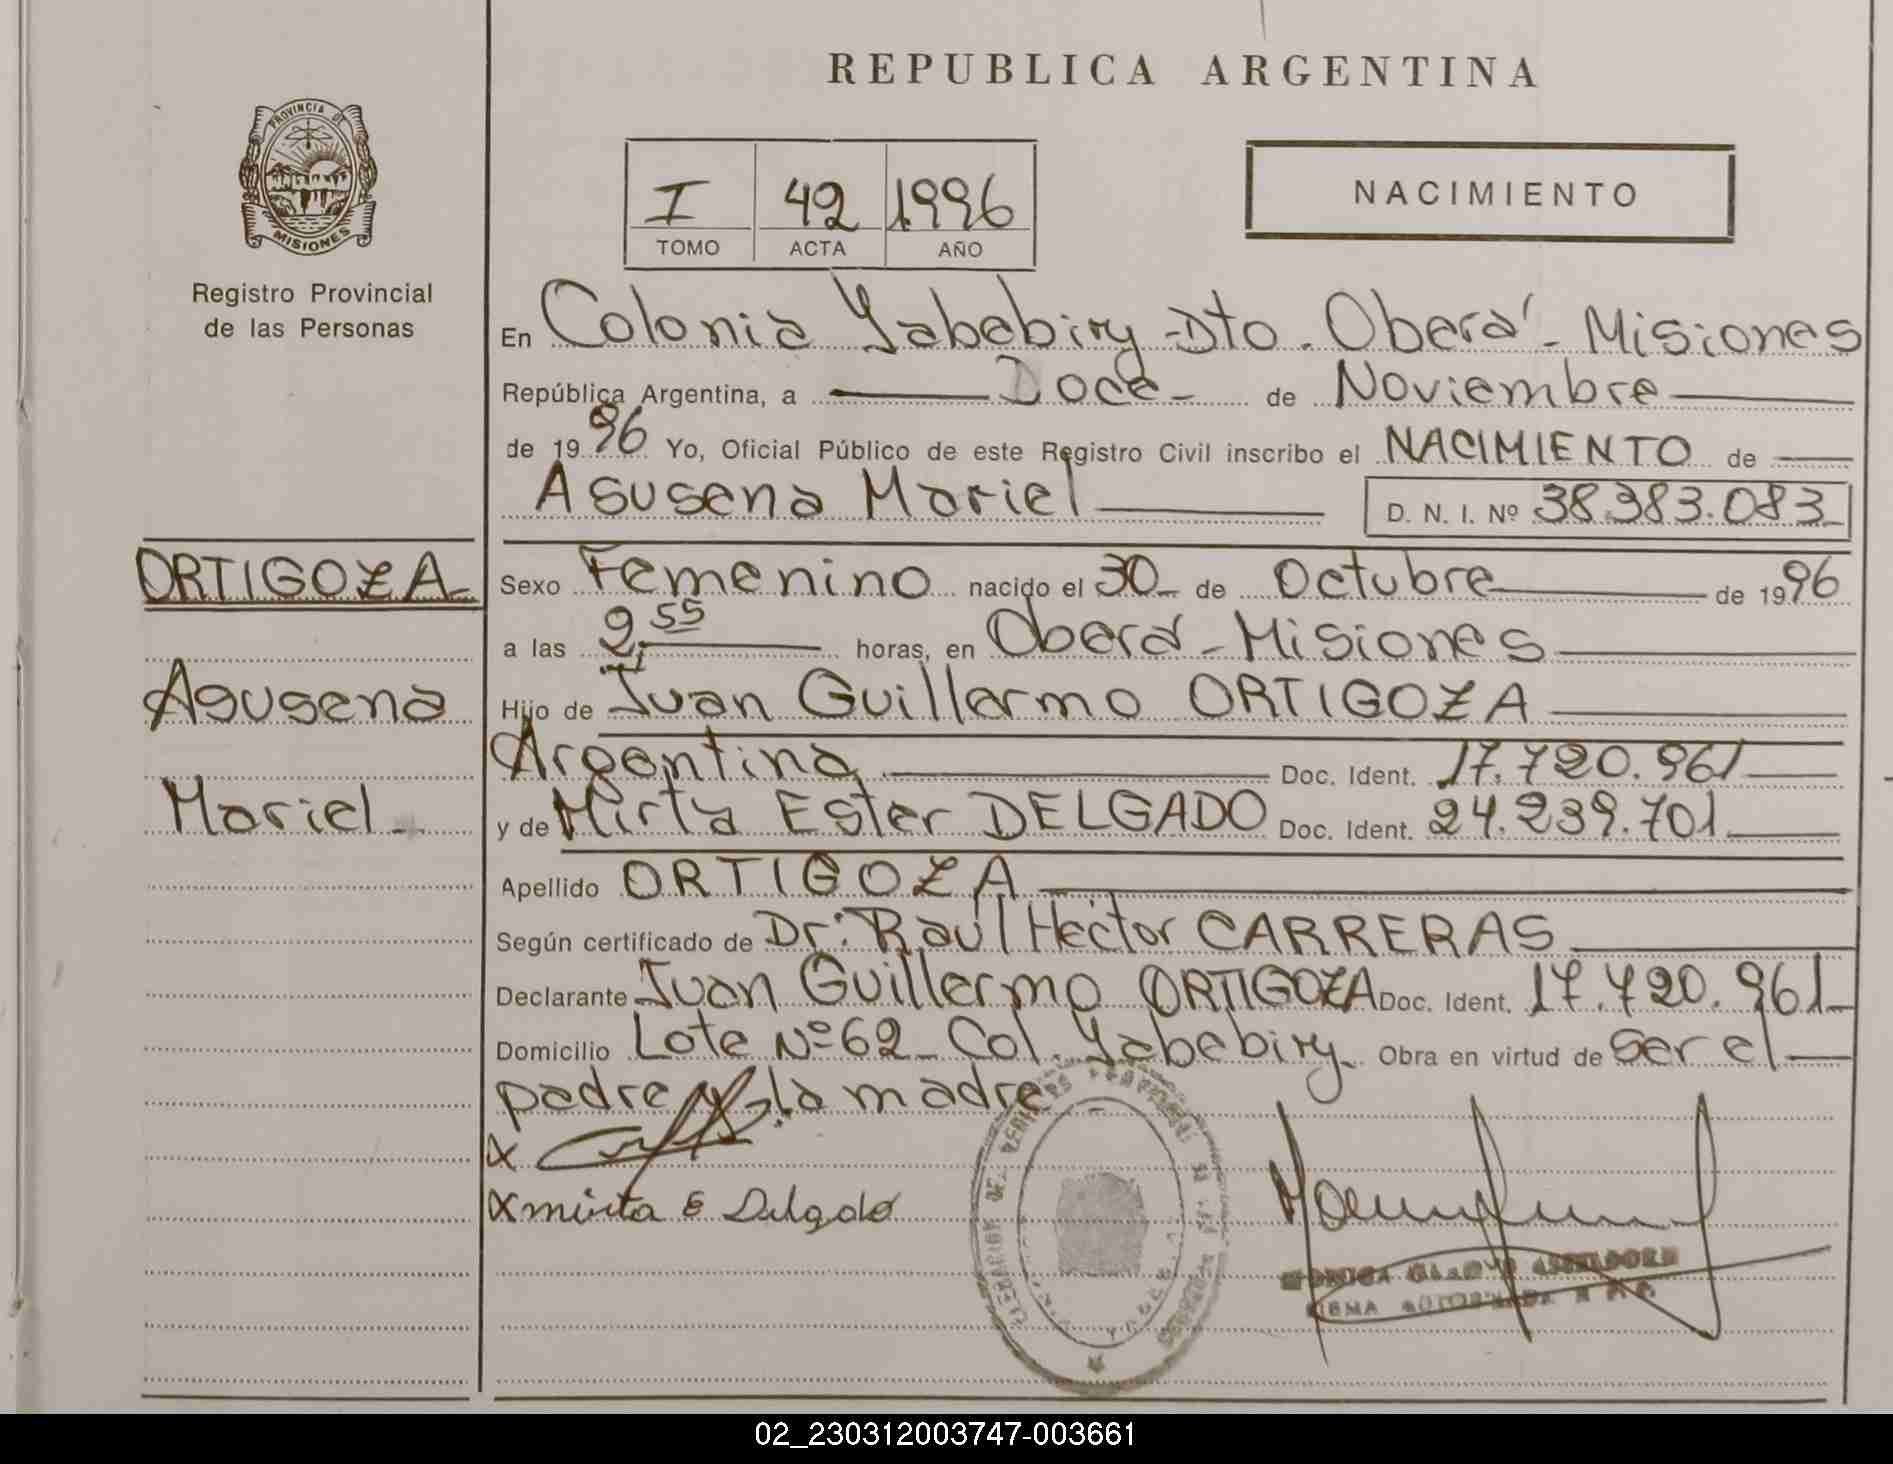 REPUBLICA ARGENTINA
PROVINCIA DE
MISIONES
Registro Provincial
de las Personas
I 42 1996
TOMO ACTA AÑO
NACIMIENTO
En Colonia Yabebiry - Dto. Oberá - Misiones
República Argentina, a Doce de Noviembre
de 1996 Yo, Oficial Público de este Registro Civil inscribo el NACIMIENTO de
Asusena Mariel D. N. I. Nº 38.383.083
ORTIGOZA
Asusena
Mariel
Sexo Femenino nacido el 30 de Octubre de 1996
a las 2,55 horas, en Oberá - Misiones
Hijo de Juan Guillermo ORTIGOZA
Argentina Doc. Ident. 17.720.961
y de Mirta Ester DELGADO Doc. Ident. 24.239.701
Apellido ORTIGOZA
Según certificado de Dr: Raúl Hector CARRERAS
Declarante Juan Guillermo ORTIGOZA Doc. Ident. 17.720.961
Domicilio Lote Nº 62 - Col. Yabebiry Obra en virtud de ser el
padre y la madre
X
X mirta E Delgado
02_230312003747-003661